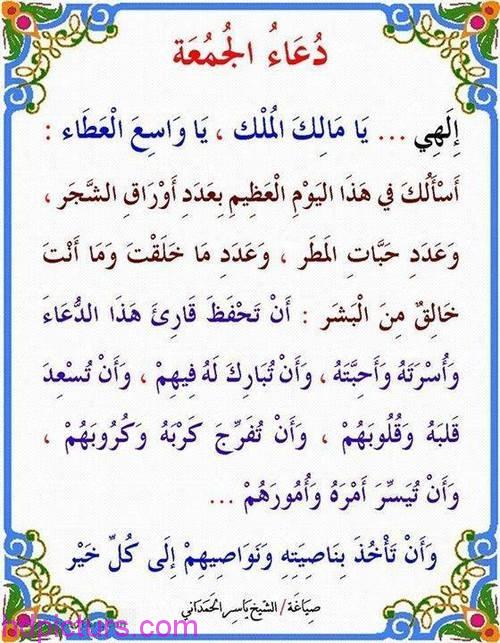 دُعَاءُ الجُمُعَة
إِلَهِي ... يَا مَالِكَ المُلْك ، يَا وَاسِعَ الْعَطَاء :
أَسْأَلُكَ فِي هَذَا اليَوْمِ العَظِيمِ بِعَدَدِ أَوْرَاقِ الشَّجَر ،
وَعَدَدِ حَبَّاتِ المَطَر ، وَعَدَدِ مَا خَلَقْتَ وَمَا أَنْتَ
خَالِقٌ مِنَ الْبَشَر : أَنْ تَحْفَظَ قَارِئَ هَذَا الدُّعَاءَ
وَأُسْرَتَهُ وَأَحِبَّتَهُ ، وَأَنْ تُبَارِكَ لَهُ فِيهِمْ ، وَأَنْ تُسْعِدَ
قَلبَهُ وَقُلُوبَهُمْ ، وَأَنْ تُفَرِّجَ كَرْبَهُ وَكُرُوبَهُمْ ،
وَأَنْ تُيَسِّرَ أَمْرَهُ وَأُمُورَهُمْ ...
وَأَنْ تَأْخُذَ بِنَاصِيَتِهِ وَنَوَاصِيهِمْ إِلَى كُلِّ خَيْر
صياغة / الشيخ ياسر الحمداني
adpicturs.com